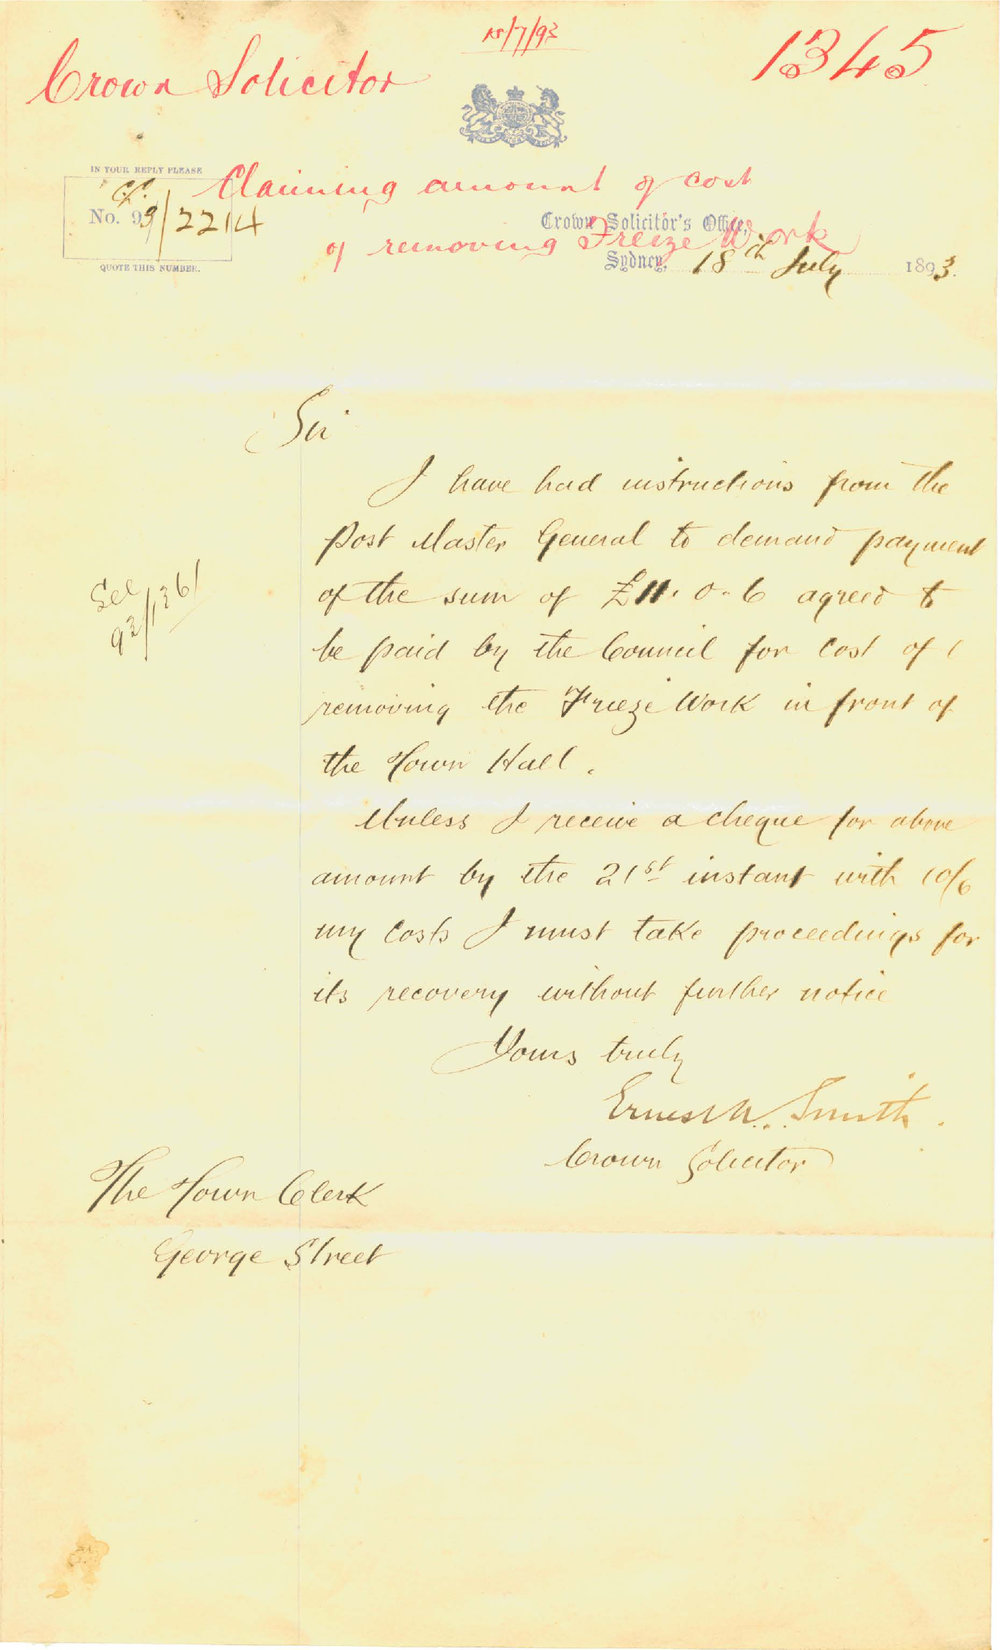 18/7/93
1345
Crown Solicitor
IN YOUR REPLY PLEASE
No. 93/2214
QUOTE THIS NUMBER.
Claiming amount of cost
of removing Freeze Work
Crown Solicitor's Office,
Sydney, 18th July 1893.
Sir
I have had instructions from the
Post Master General to demand payment
of the sum of £11.0.6 agreed to
be paid by the Council for cost of
removing the Frieze Work in front of
the Town Hall.
See
93/1361
Unless I receive a cheque for above
amount by the 21st instant with 10/6
my costs I must take proceedings for
its recovery without further notice
Yours truly
Ernest A. Smith.
Crown Solicitor
The Town Clerk
George Street